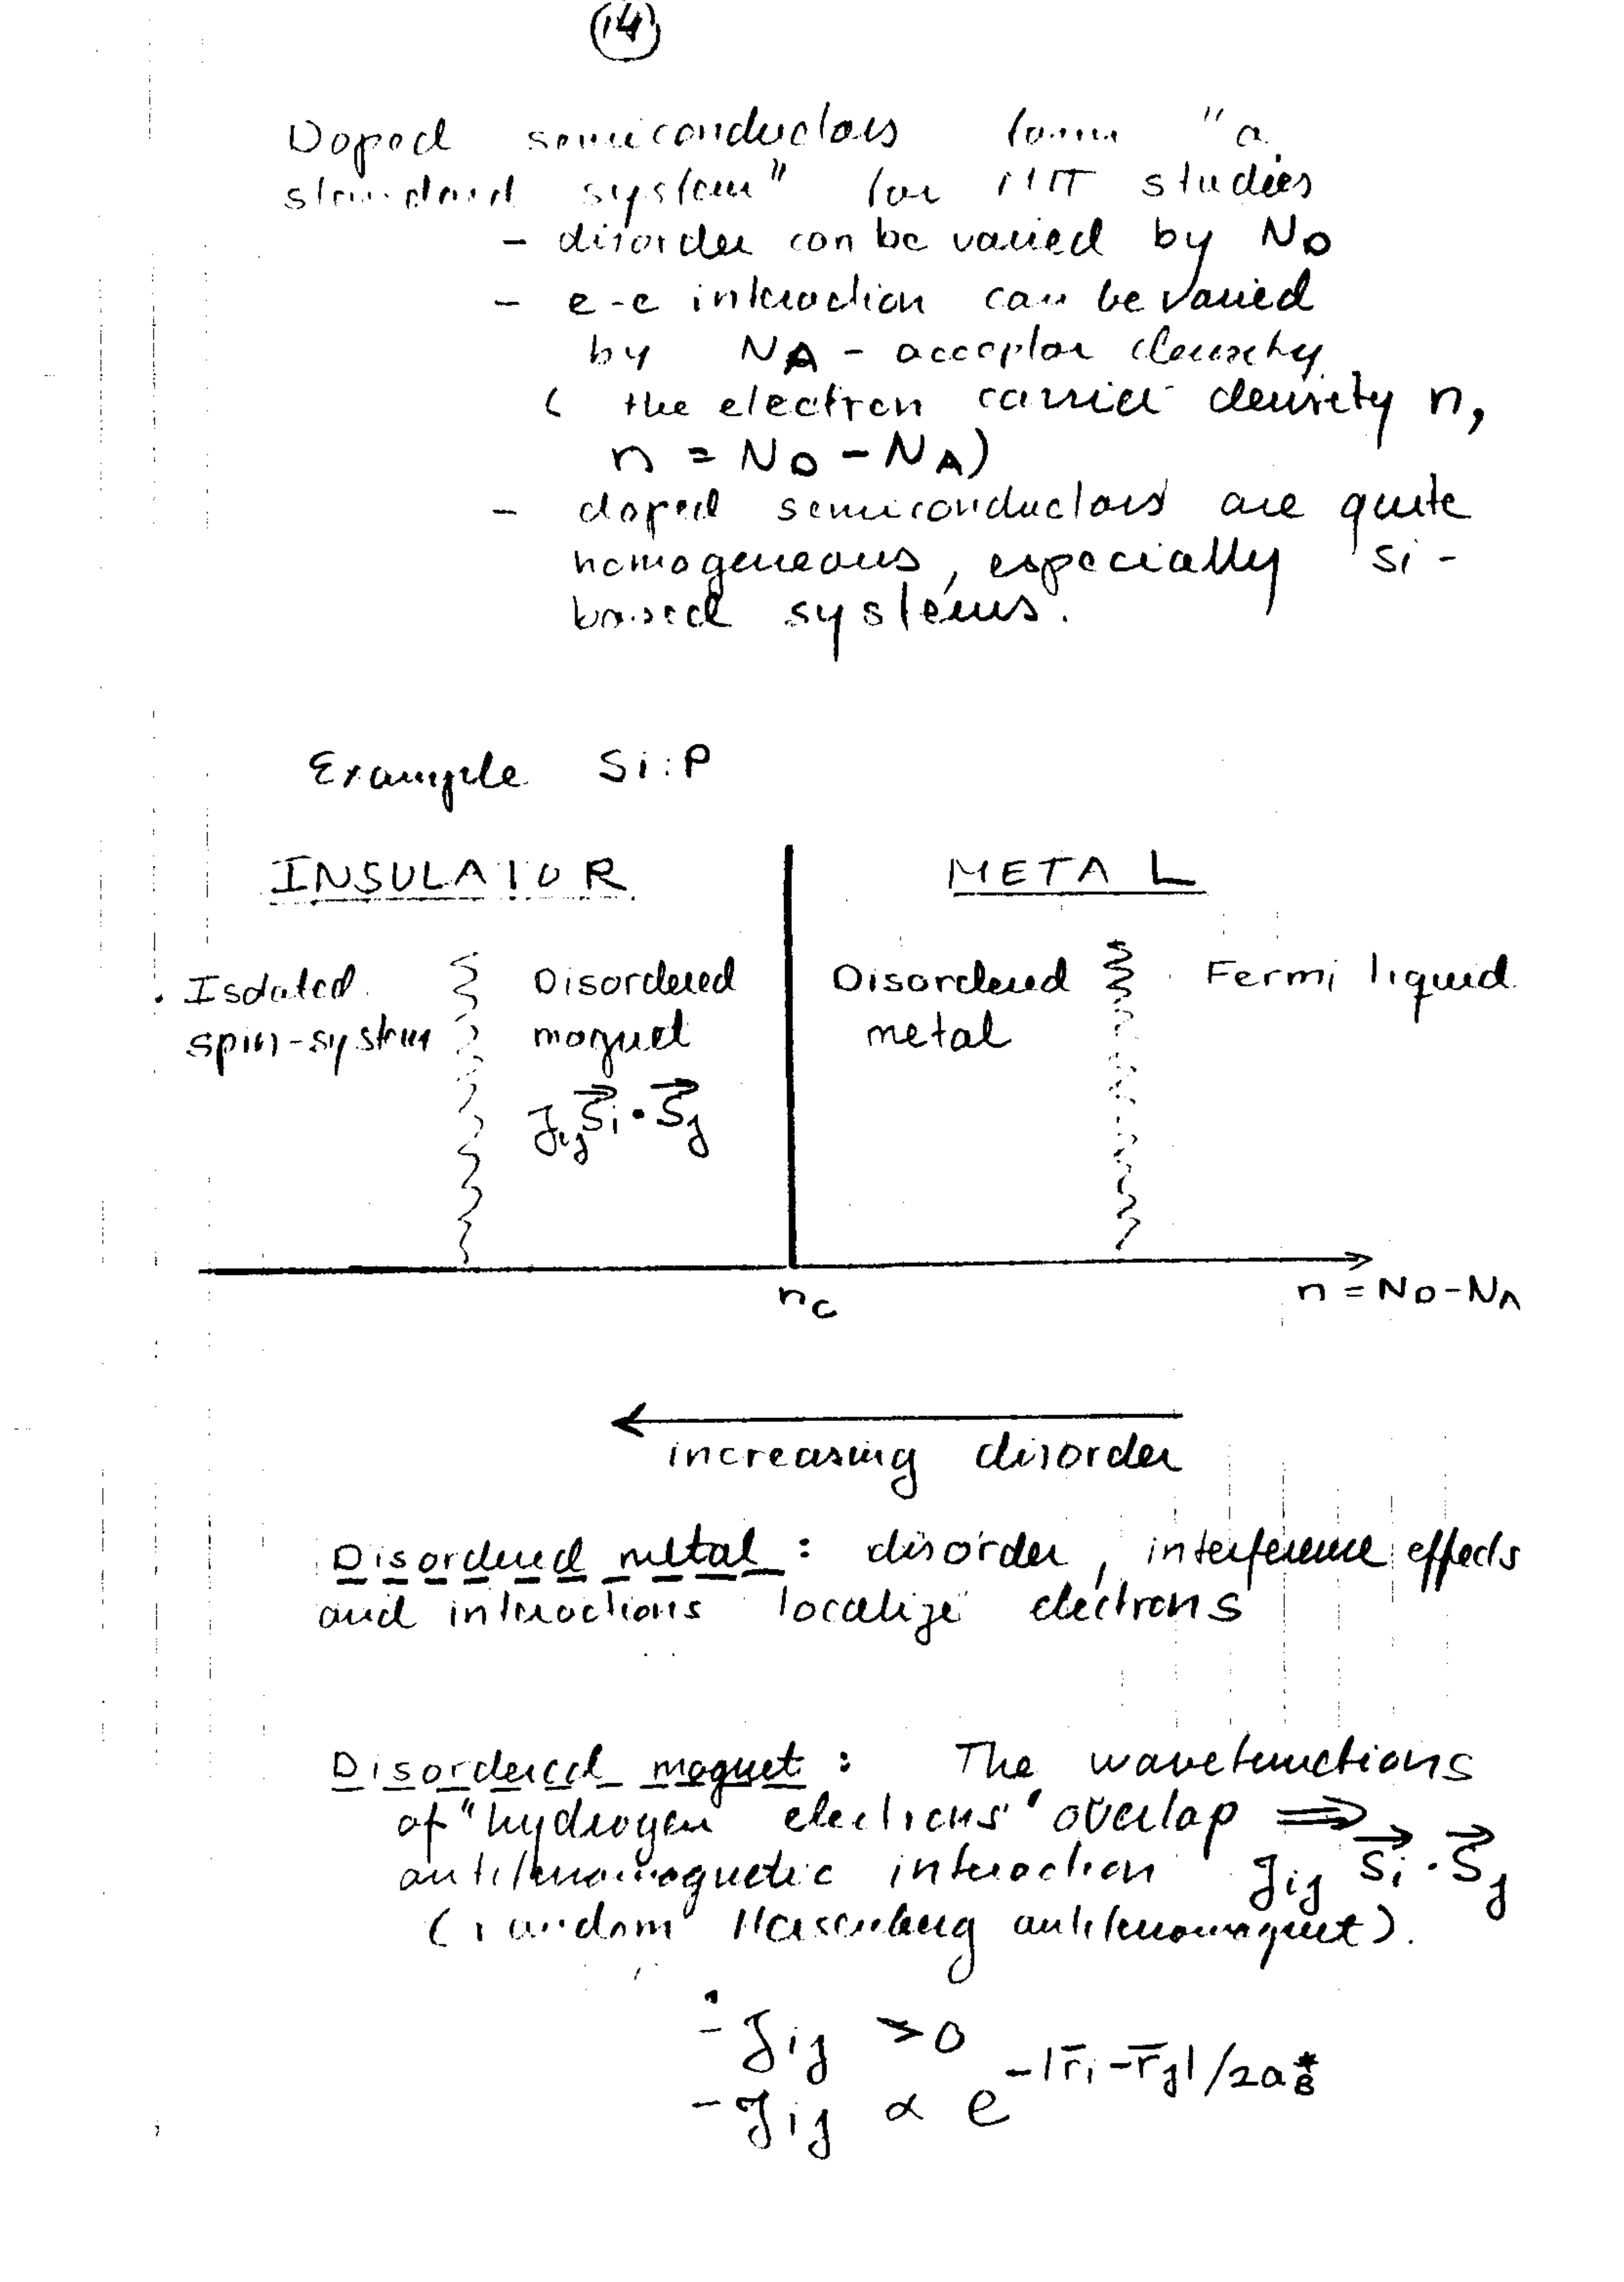 14
Doped semiconductors form "a
standard system" for MIT studies
- disorder can be varied by N_D
- e-e interaction can be varied
by N_A - acceptor density
( the electron carrier density n,
n = N_D - N_A)
- doped semiconductors are quite
homogeneous, especially Si-
based systems.
Example Si:P
INSULATOR METAL
Isolated spin-system
Disordered magnet
J_ij S⃗_i · S⃗_j
Disordered metal
Fermi liquid
n_c
n = N_D - N_A
increasing disorder
Disordered metal : disorder, interference effects
and interactions localize electrons
Disordered magnet : The wavefunctions
of "hydrogen electrons" overlap ⟹
antiferromagnetic interaction J_ij S⃗_i · S⃗_j
(random Heisenberg antiferromagnet).
- J_ij > 0
- J_ij ∝ e^{-|r̄_i - r̄_j|/2a_B^*}